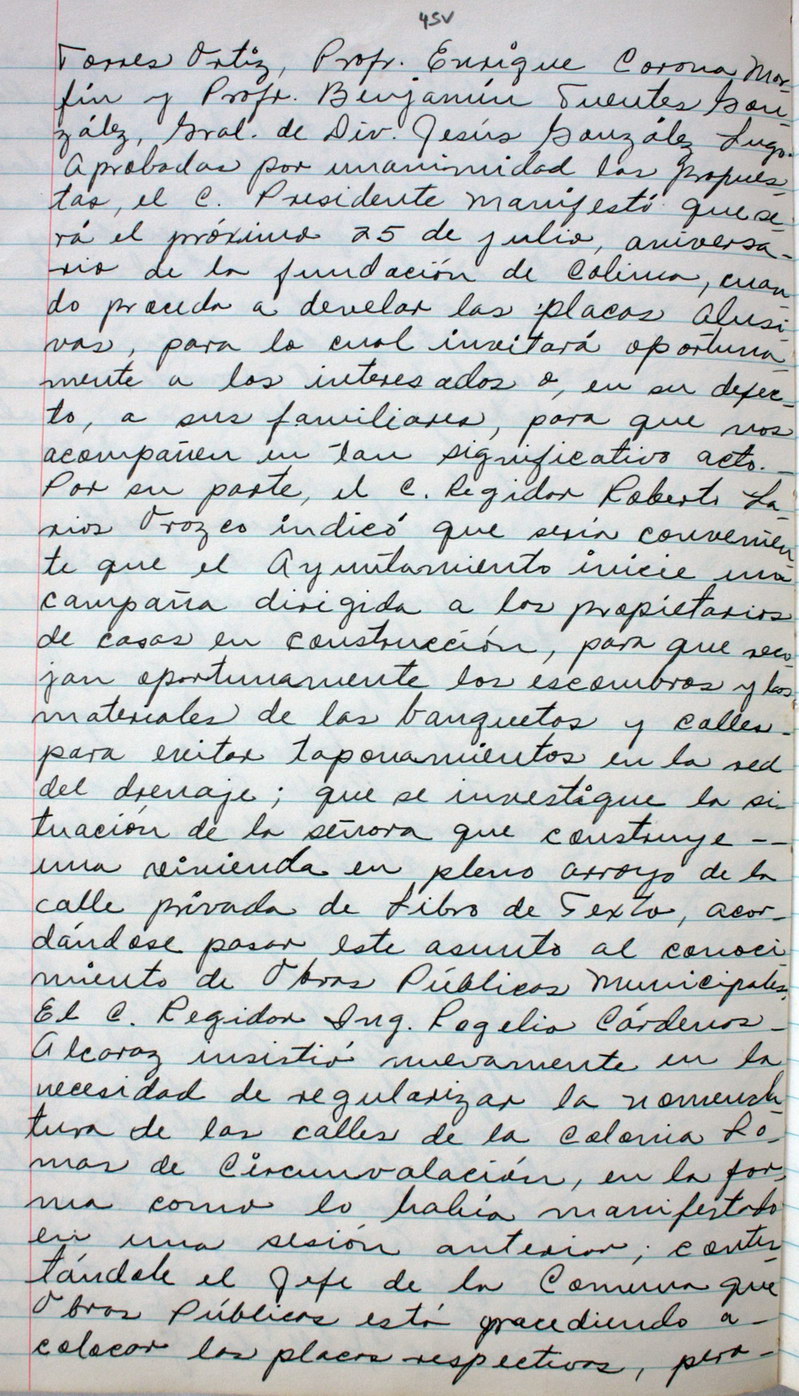 45V
Torres Ortiz, Profr. Enrique Corona Mor-
fín y Profr. Benjamín Fuentes Gon-
zález, Gral. de Div. Jesús González Lugo.
Aprobadas por unanimidad las propues-
tas, el C. Presidente manifestó que se-
rá el próximo 25 de julio, aniversa-
rio de la fundación de Colima, cuan
do proceda a develar las placas alusi
vas, para lo cual invitará oportuna-
mente a los interesados o, en su defec-
to, a sus familiares, para que nos
acompañen en tan significativo acto.-
Por su parte, el C. Regidor Roberto La-
rios Orozco indicó que sería convenien
te que el Ayuntamiento inicie una
campaña dirigida a los propietarios
de casas en construcción, para que reco
jan oportunamente los escombros y los
materiales de las banquetas y calles-
para evitar taponamientos en la red
del drenaje; que se investigue la si-
tuación de la señora que construye --
una vivienda en pleno arroyo de la
calle privada de Libro de Texto, acor-
dándose pasar este asunto al conoci
miento de Obras Públicas Municipales.
El C. Regidor Ing. Rogelio Cárdenas-
Alcaraz insistió nuevamente en la
necesidad de regularizar la nomencla
tura de las calles de la Colonia Lo-
mas de Circunvalación, en la for-
ma como lo había manifestado
en una sesión anterior; contes-
tándole el Jefe de la Comuna que
Obras Públicas está procediendo a-
colocar las placas respectivas, pero-